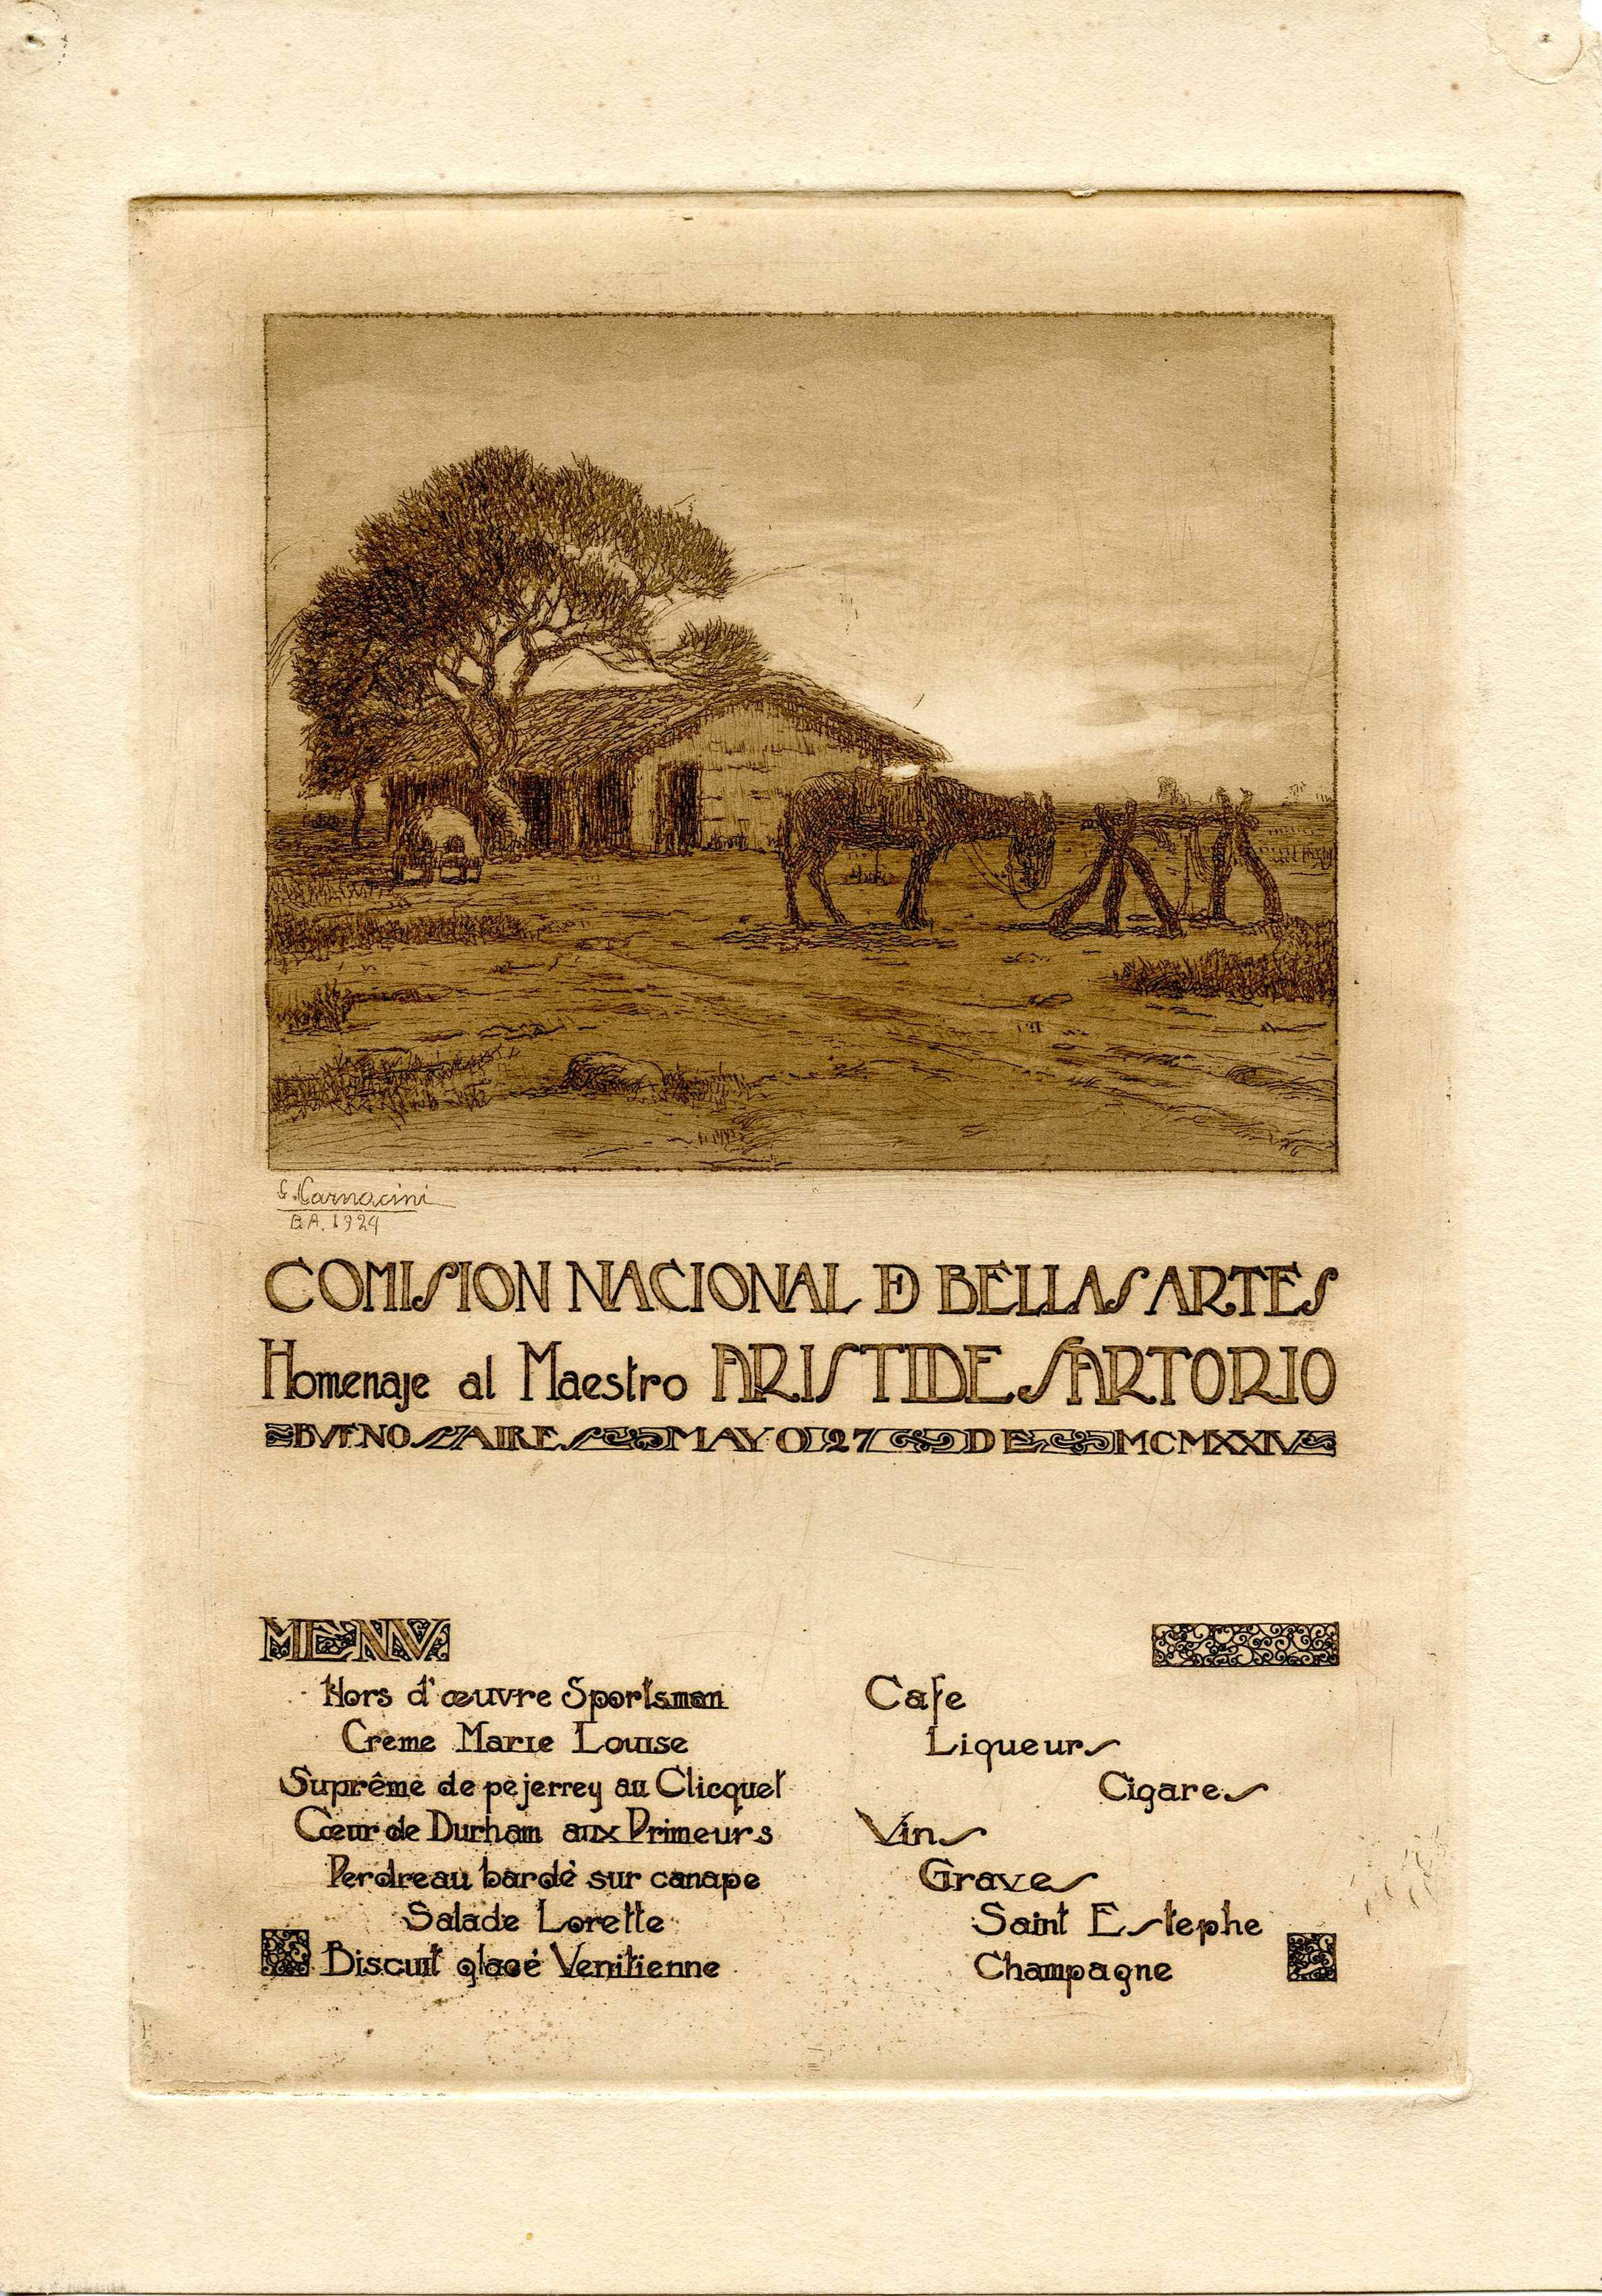 C. Carnacini
B.A. 1924
COMISION NACIONAL DE BELLAS ARTES
Homenaje al Maestro ARISTIDE SARTORIO
BVENOS AIRES MAYO 27 DE MCMXXIV
MENV
Hors d'œuvre Sportsman
Creme Marie Louise
Suprême de pejerrey au Clicquet
Cœur de Durham aux Primeurs
Perdreau bardé sur canape
Salade Lorette
Biscuit glacé Venitienne
Cafe
Liqueurs
Cigares
Vins
Graves
Saint Estephe
Champagne